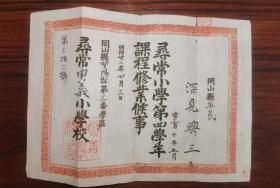 岡山縣平民
深見與三
當三月十年五月
尋常小學第四學年
課程修業候事
明治廿三年四月三日
岡山縣
第三番學區
尋常申義小學校